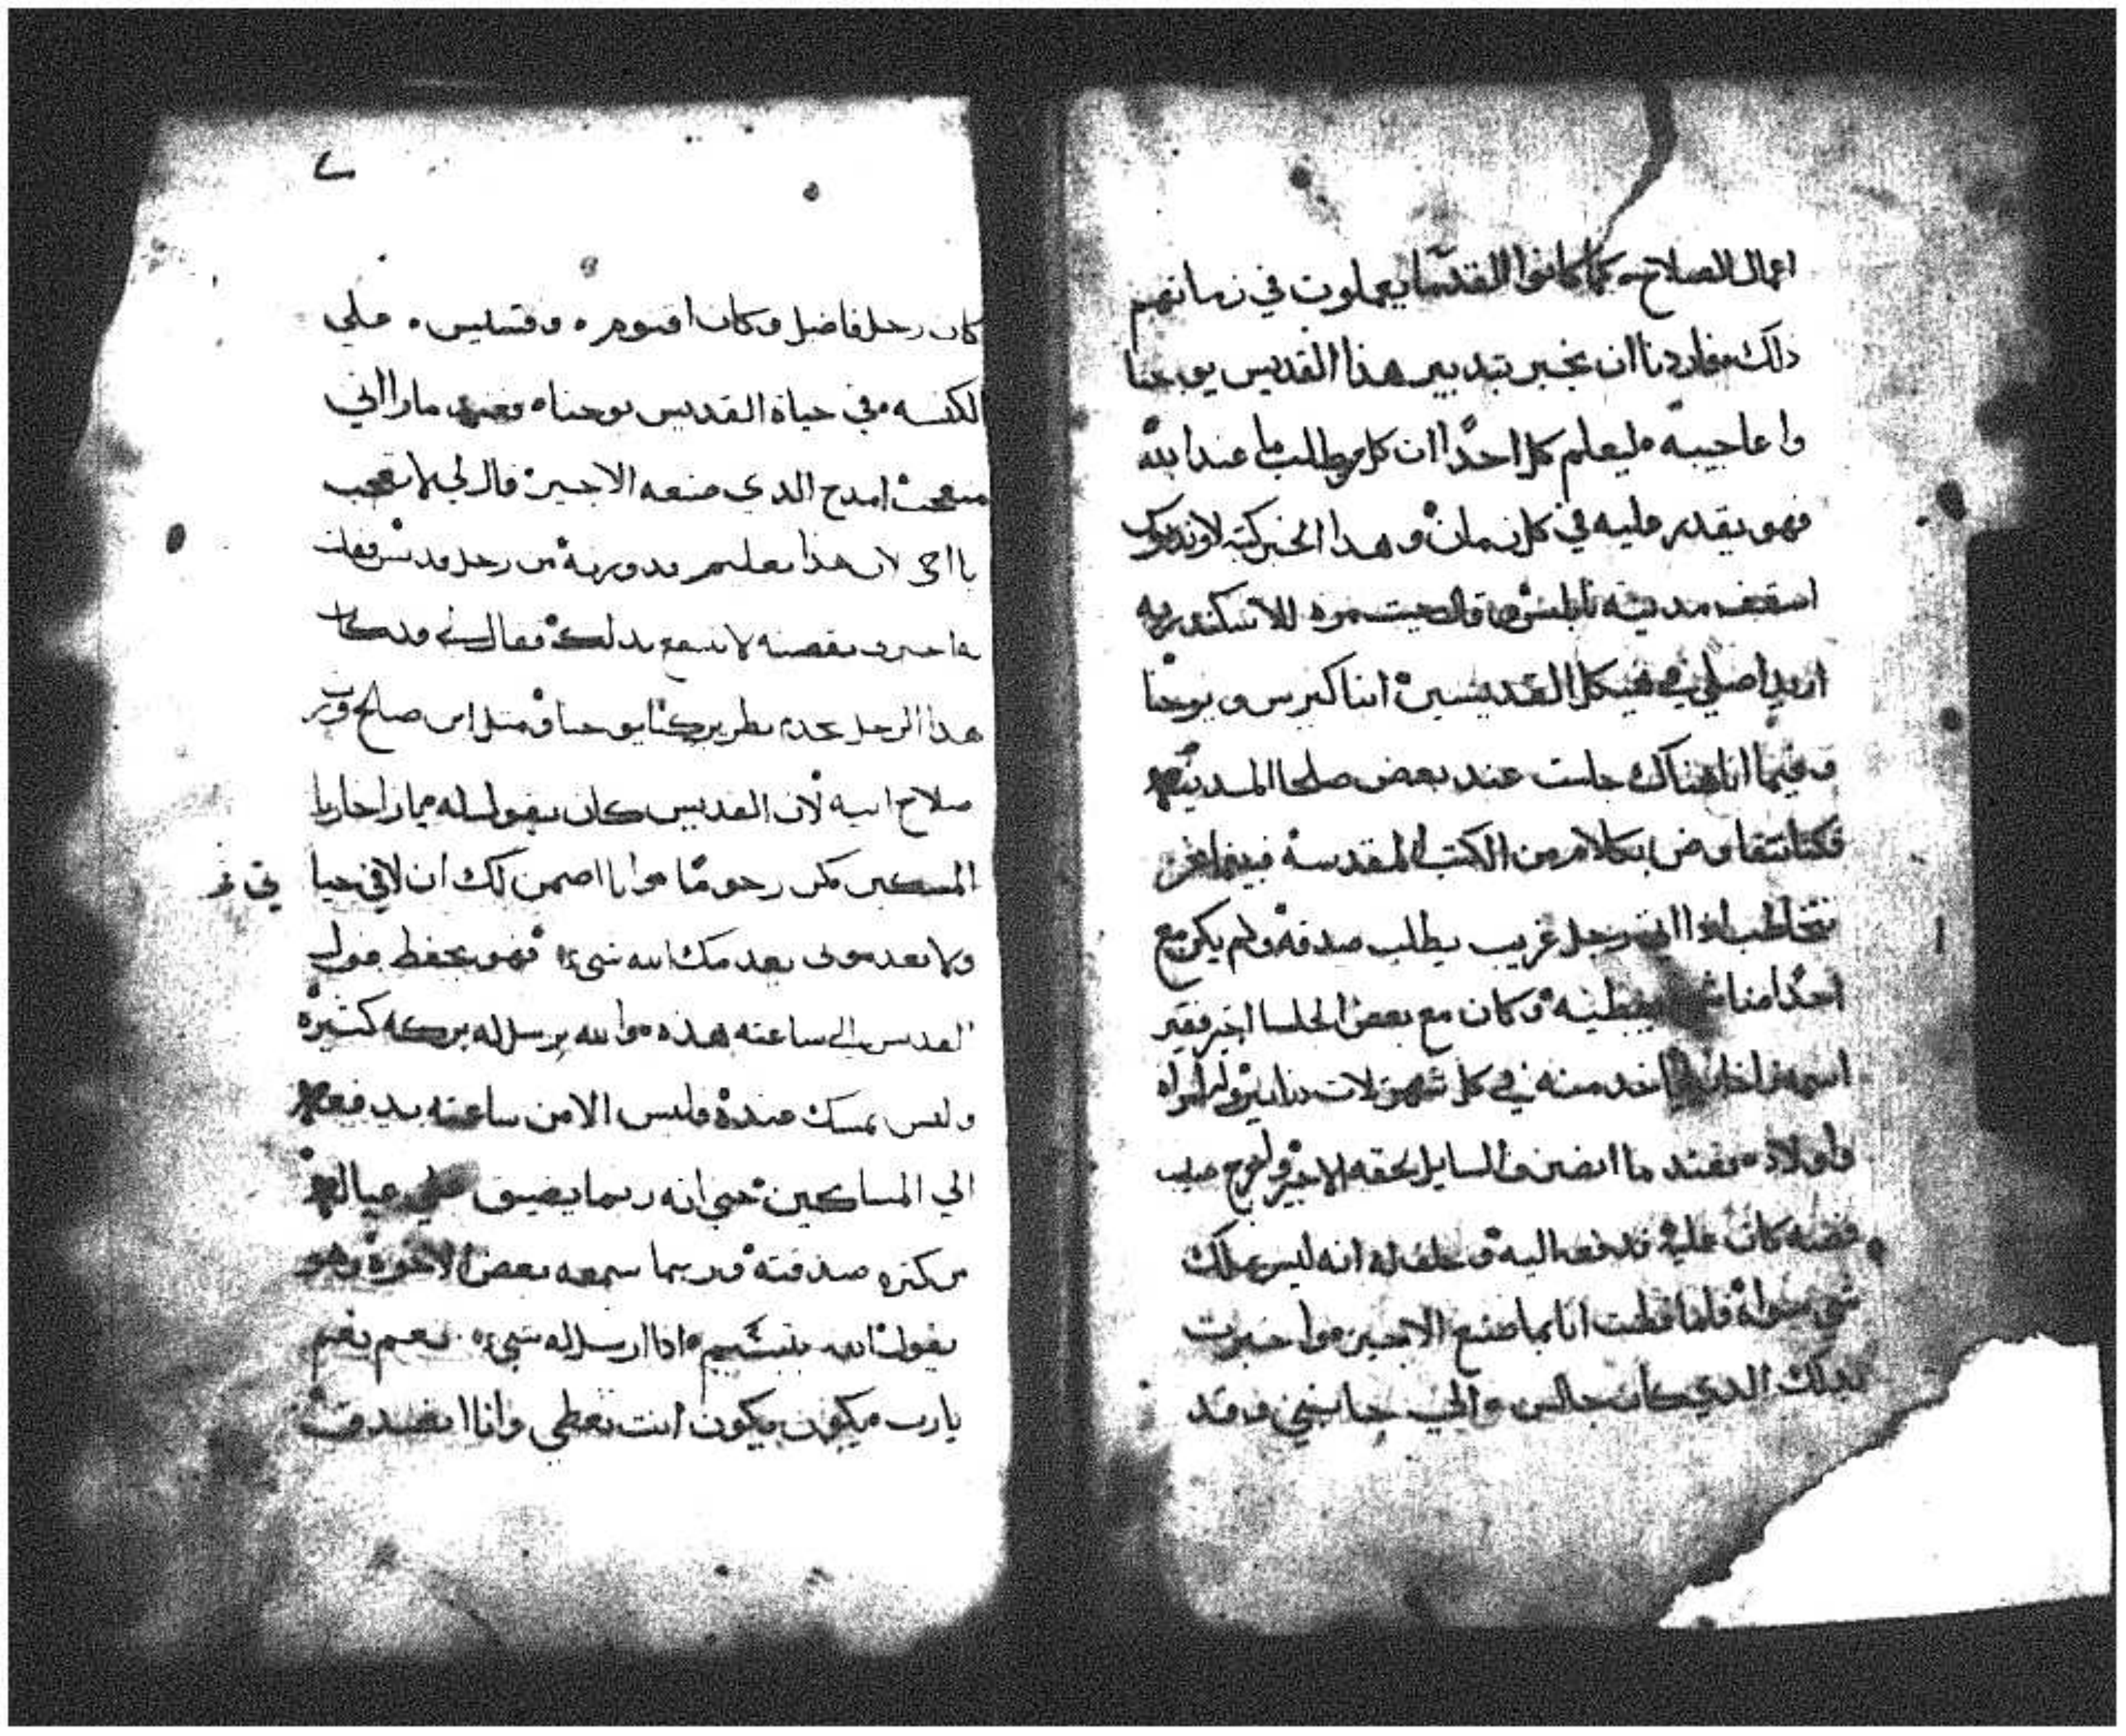 اعمال الصلاح كما كانوا القدسا يعملون في زمانهم
ذلك فاردنا ان نخبر بتدبير هذا القديس يوحنا
واعاجيبه ليعلم كل احدًا ان كل من طلب ما عند الله
فهو يقدر عليه في كل زمان وهدا الخبر كتبه لاونديوس
اسقف مدينه نابلس قال جيت مره للاسكندريه
اريد اصلي في هيكل القديسين ابنا كيرس ويوحنا
وفيما انا هناك جلست عند بعض صلحا المدينه
فكنا نتفاوض بكلام من الكتب المقدسه فبينما نحن
نتخاطب اذا اتى رجل غريب يطلب صدقه ولم يكن مع
احدًا منا يعطيه وكان مع بعض الجلسا اجير فقير
اسمه ياخد منه في كل شهر تلات دنانير وله امراه
واولاد فعند ما انصرف السايل لحقه الاجير صليب
فضه كان عليه فدفعه اليه وحلف له انه ليس يملك
شي سواه فلما فطنت انا بما صنع الاجير واخبرت
بدلك الدي كان جالس والي جانبي وقد
ے
كان رجل فاضل وكان اقنوم وقسيس علي
الكنسه في حياة القديس يوحنا فعند ما راني
متعجب امدح الدي صنعه الاجير قال لي لا تعجب
يا اخي لان هذا تعليم قد ورته من رجل قديس فقلت
اخبرني بقصته لانتفع بدلك فقال لي قد كان
هدا الرجل يخدم بطريركنا يوحنا ومتل ابن صالح ورث
صلاح ابيه لان القديس كان يقول له يا زاخاريا
المسكين كن رحومًا وانا اضمن لك ان لا في حيا
تي و
ولا بعد موتى يعدمك الله شي فهو يحفظ قول
القديس الي ساعته هذه والله يرسل له بركه كتيره
وليس يمسك عنده فلس الا من ساعته يدفعه
الي المساكين حتي انه ربما يضيق علي عياله
من كتره صدقته وربما سمعه بعض الاخوه وهو
يقول لله يتبسّم اذا ارسل له شي نعم نعم
يارب هيكون هيكون انت تعطي وانا اتصدق